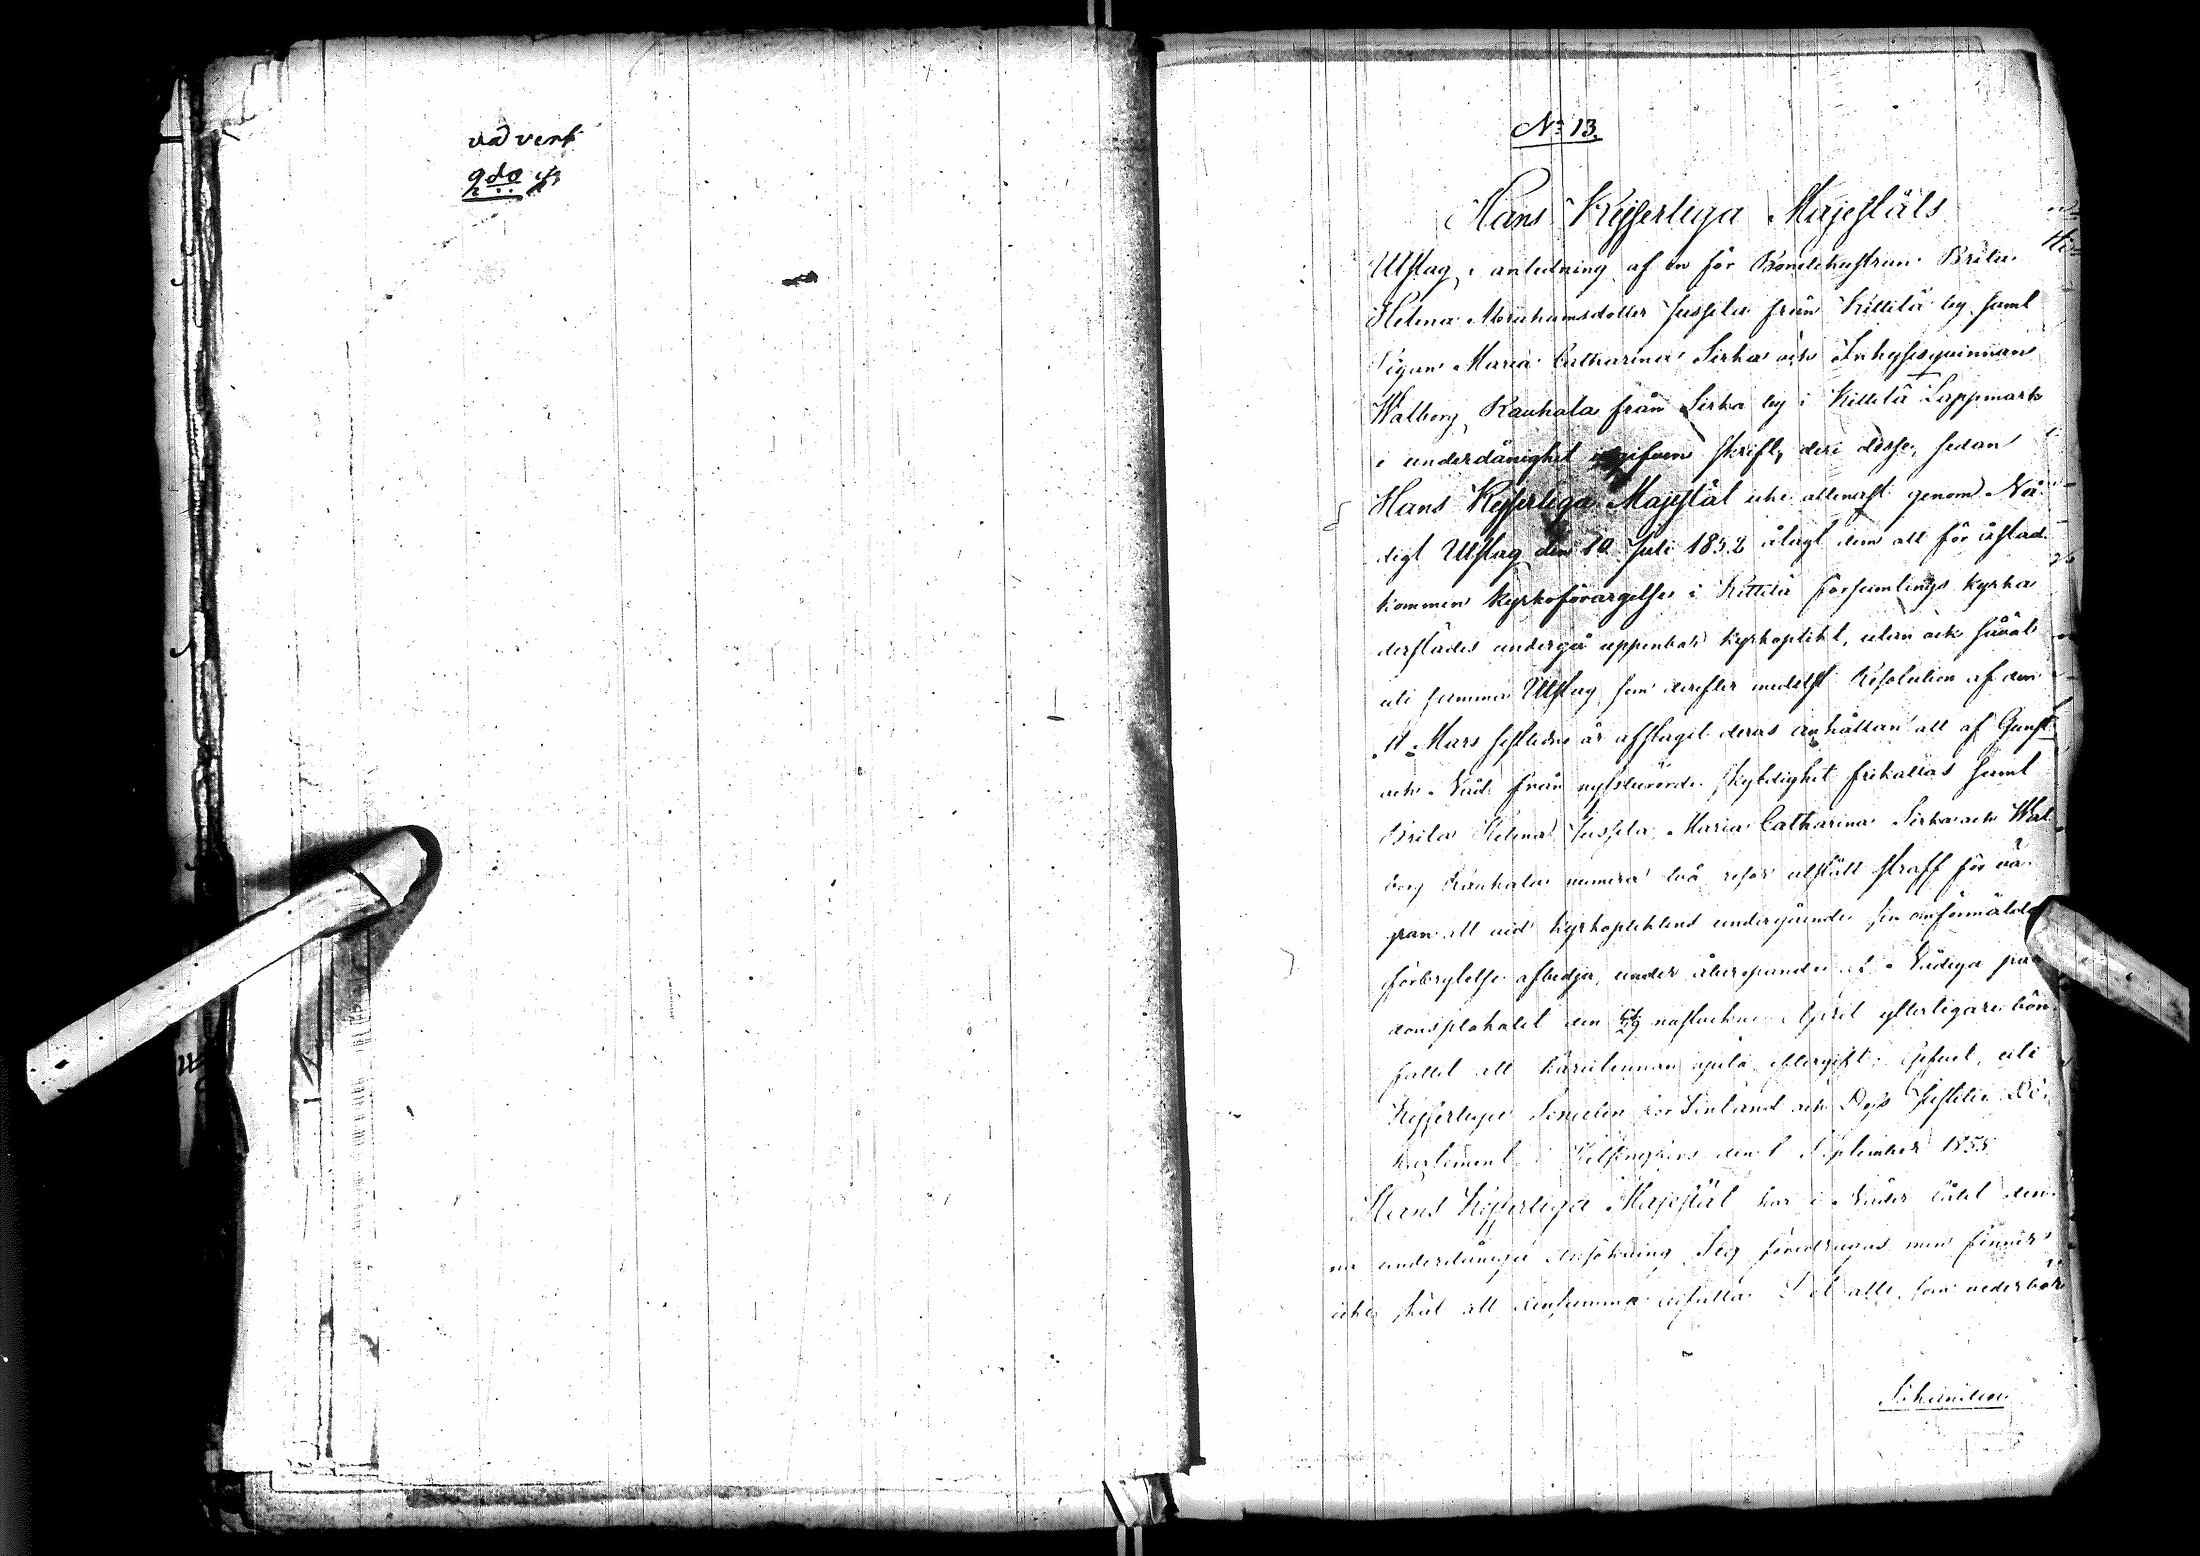 vad vert
2do
No 13.
Hans Kejserliga Majestäts
Utslag, i anledning af en för Bondehustrun Brita
Helena Abrahamsdotter Jussila från Kittilä by samt
Pigan Maria Catharina Sirka och Inhysesqvinnan
Walborg Kauhala från Sirka by i Kittilä Lappmark
i underdånighet ingifven skrift, deri desse, sedan
Hans Kejserliga Majestät icke allenast genom Nå-
digt Utslag den 10 Juli 1852 ålagt dem att för åstad-
kommen kyrkoförargelse i Kittilä församlings kyrka
derstädes undergå uppenbar kyrkoplikt, utan ock såväl
uti samma Utslag som derefter medelst Resolution af den
11 Mars sistlidne år afslagit deras anhållan att af Gunst
och Nåd från nyssberörde skyldighet frikallas samt
Brita Helena Jussila, Maria Catharina Sirka och Wal-
borg Kauhala numera två resor utstått straff för vä-
gran att vid kyrkopliktens undergående sin omförmälda
förbrytelse afbedja, under åberopande af Nådiga par-
donsplakatet den nästvekne April ytterligare bön-
fallit att härutinnan njuta eftergift; Gifvet, uti
Kejserliga Senaten för Finland och Dess Justitie De-
partement i Helsingfors den 1 September 1855.
Hans Kejserliga Majestät har i Nåder låtit den-
na underdåniga ansökning Sig föredragas men finner
icke skäl att densamma bifalla. Det alle, som vederbör